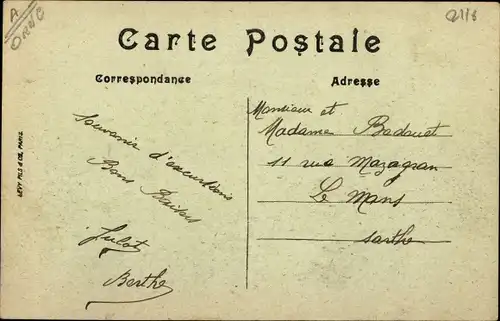 A
ORNE
Carte Postale
Correspondance
Adresse
LEVY FILS & CIE, PARIS
Souvenir d'excursions
Bons Baisers
Julot
Berthe
Monsieur et
Madame Badouet
11 rue Mazagran
Le Mans
Sarthe